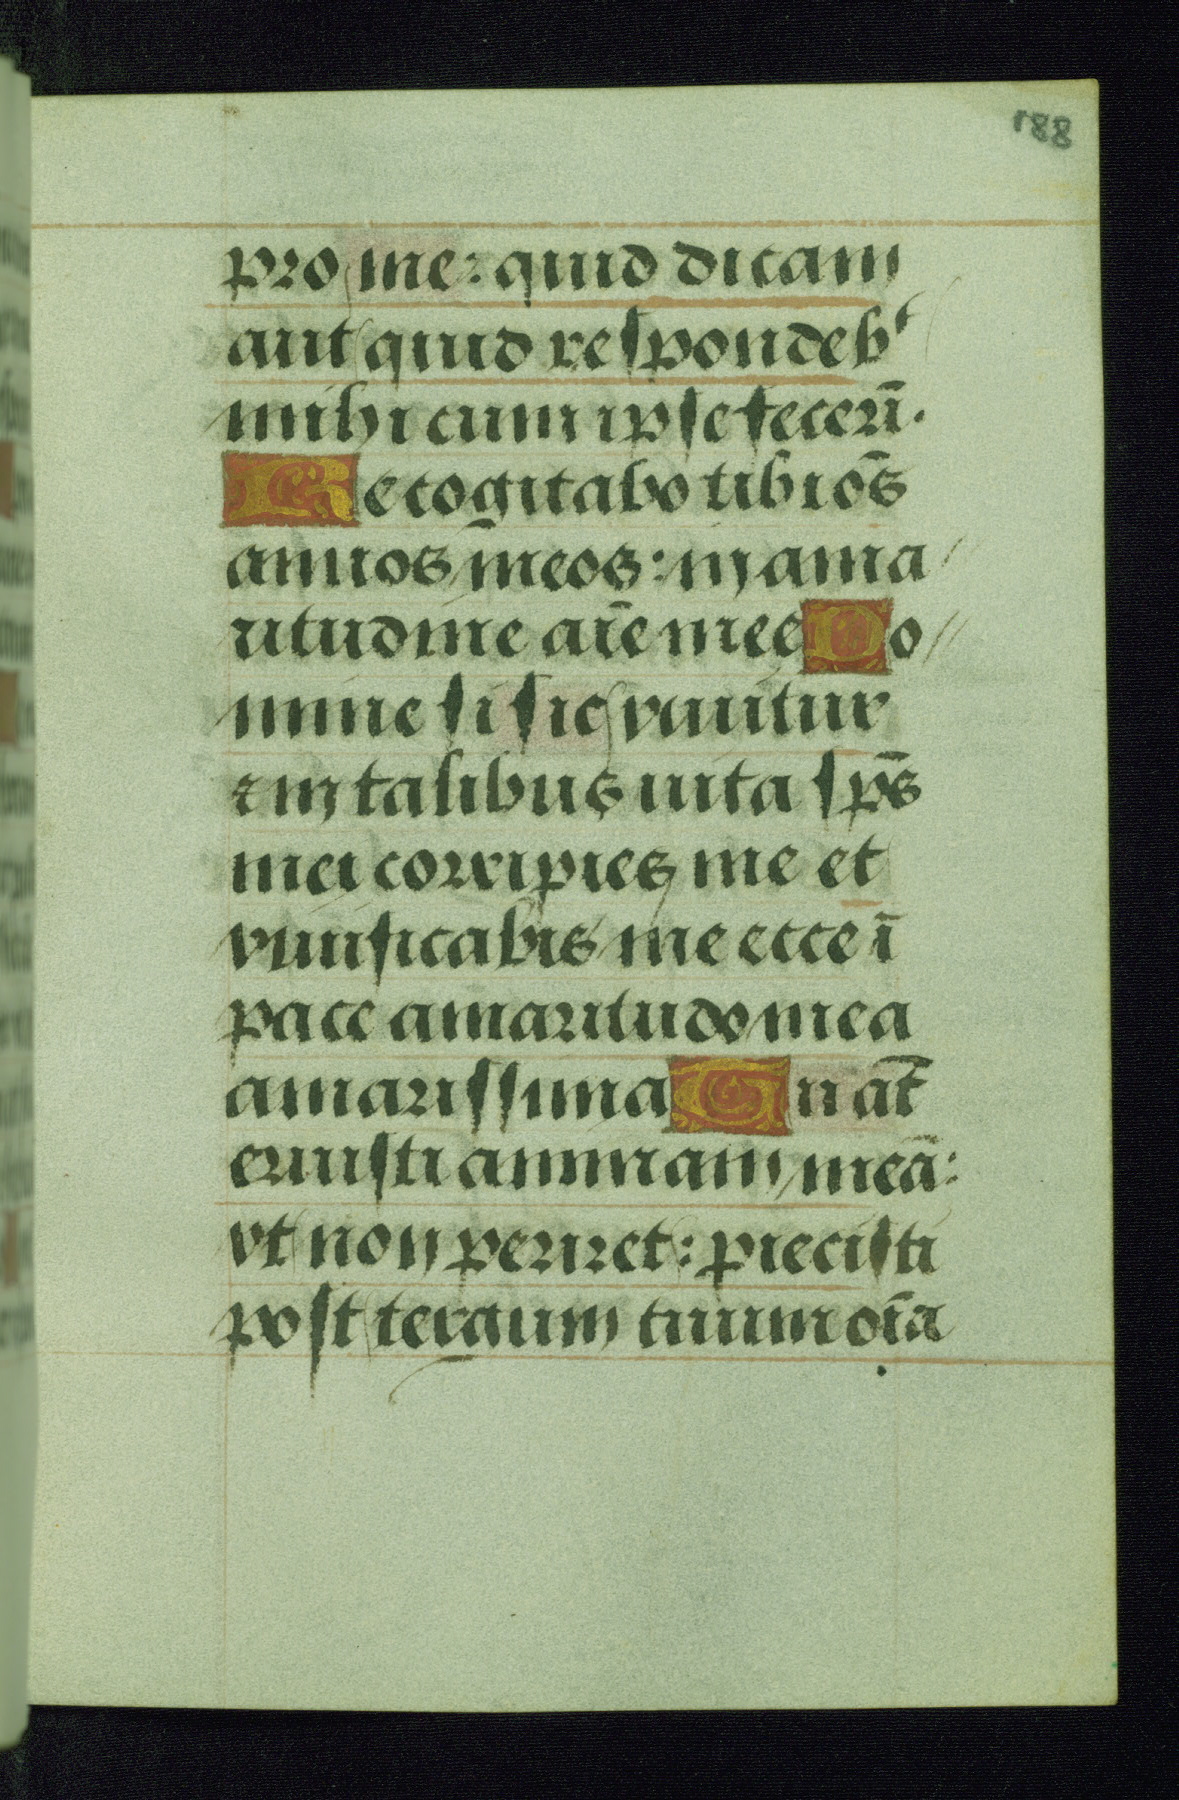 188
pro me: quid dicam
aut quid respondebᵗ
mihi cum ipse fecerī.
Recogitabo tibi oēs
annos meos: in ama
ritudine aīe mee Do
mine si sic viuitur
⁊ in talibus uita sp̄s
mei corripies me et
viuificabis me ecce ī
pace amaritudo mea
amarissima Tu at̄
eruisti animam meā:
vt non periret: pieci sti
post tergum tuum oīa